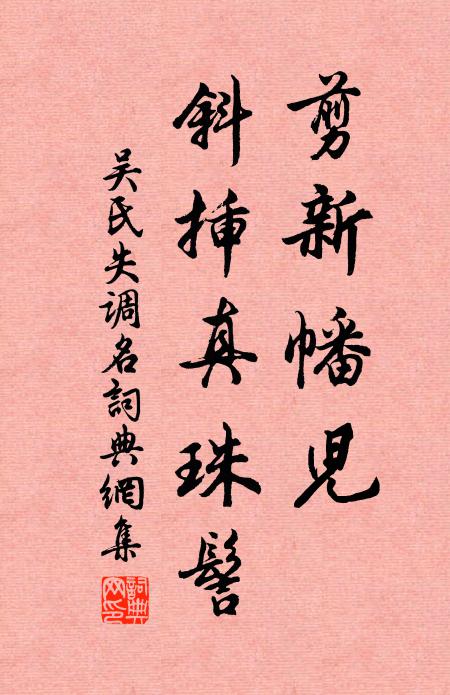 剪新幡兒
斜插真珠髻
吳氏失調名詞典網集
詞典網印